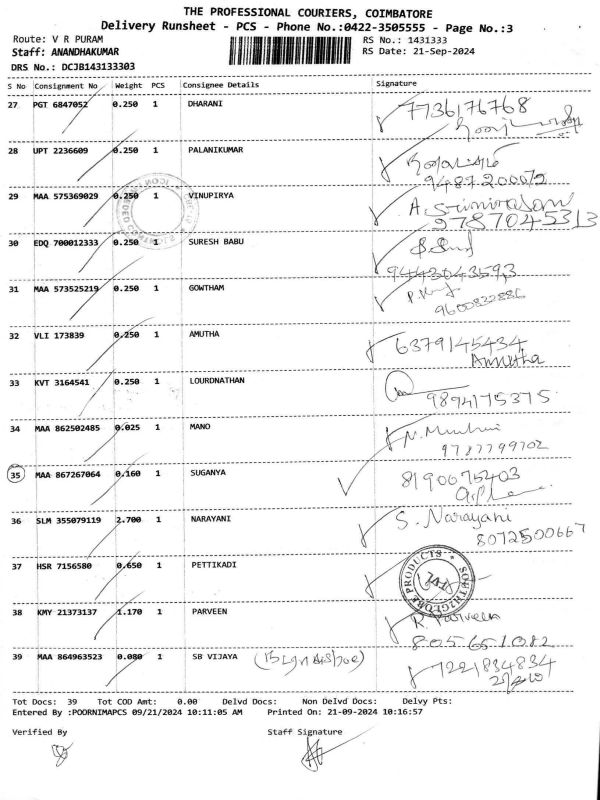 THE PROFESSIONAL COURIERS, COIMBATORE
Delivery Runsheet - PCS - Phone No.:0422-3505555 - Page No.:3
Route: V R PURAM RS No.: 1431333
Staff: ANANDHAKUMAR RS Date: 21-Sep-2024
DRS No.: DCJB143133303
S No Consignment No Weight PCS Consignee Details Signature
27 PGT 6847052 0.250 1 DHARANI 7736176768
28 UPT 2236609 0.250 1 PALANIKUMAR
29 MAA 575369029 0.250 1 VINUPIRYA A. Srinivasan
9787045313
30 EDQ 700012333 0.250 1 SURESH BABU
9443043593
31 MAA 573525219 0.250 1 GOWTHAM
9600832886
32 VLI 173839 0.250 1 AMUTHA 6379145434
Amutha
33 KVT 3164541 0.250 1 LOURDNATHAN
9894175375
34 MAA 862502485 0.025 1 MANO
9787799702
35 MAA 867267064 0.160 1 SUGANYA 8190075403
36 SLM 355079119 2.700 1 NARAYANI S. Narayani
8072500667
37 HSR 7156580 0.650 1 PETTIKADI
SOUTH2GLOBE PRODUCTS
38 KMY 21373137 1.170 1 PARVEEN R. Parveen
805651082
39 MAA 864963523 0.080 1 SB VIJAYA 7221834834
Tot Docs: 39 Tot COD Amt: 0.00 Delvd Docs: Non Delvd Docs: Delvy Pts:
Entered By :POORNIMAPCS 09/21/2024 10:11:05 AM Printed On: 21-09-2024 10:16:57
Verified By Staff Signature